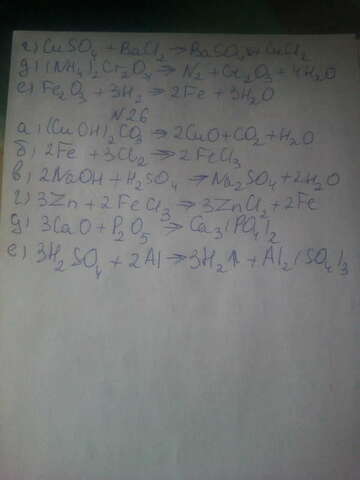 г) CuSO₄ + BaCl₂ → BaSO₄ + CuCl₂
д) (NH₄)₂Cr₂O₇ → N₂ + Cr₂O₃ + 4H₂O
е) Fe₂O₃ + 3H₂ → 2Fe + 3H₂O
N26
а) (CuOH)₂CO₃ → 2CuO + CO₂ + H₂O
б) 2Fe + 3Cl₂ → 2FeCl₃
в) 2NaOH + H₂SO₄ → Na₂SO₄ + 2H₂O
г) 3Zn + 2FeCl₃ → 3ZnCl₂ + 2Fe
д) 3CaO + P₂O₅ → Ca₃(PO₄)₂
е) 3H₂SO₄ + 2Al → 3H₂↑ + Al₂(SO₄)₃